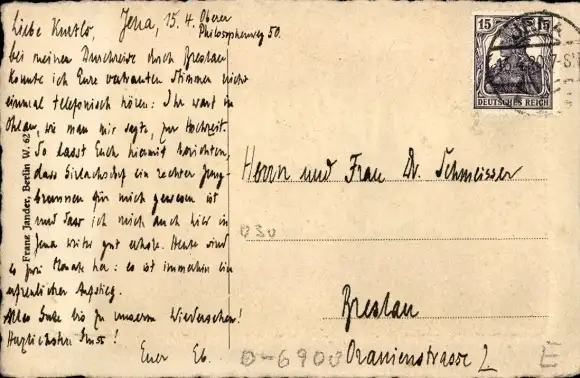 Jena, 15.4. Oberer
Philosophenweg 50.
Liebe
bei meiner Durchreise durch Breslau
konnte ich Eure vertrauten Stimmen nicht
einmal telefonisch hören: Ihr wart in
Ohlau, wie man mir sagte, zur Hochzeit.
So lasst Euch hiermit berichten,
dass ein rechter Jung-
brunnen für mich gewesen ist
und dass ich mich auch hier in
Jena weiter gut erhole. Heute sind
es zwei Monate her: es ist immerhin ein
erfreulicher Aufstieg.
Alles Gute bis zu unserem Wiedersehen!
Herzlichsten Gruss!
Euer Eb.
Franz Jander, Berlin W. 62
15 15
DEUTSCHES REICH
JENA
Herrn und Frau Dr. Schmeisser
Breslau
Oranienstrasse 2
D-6900
E